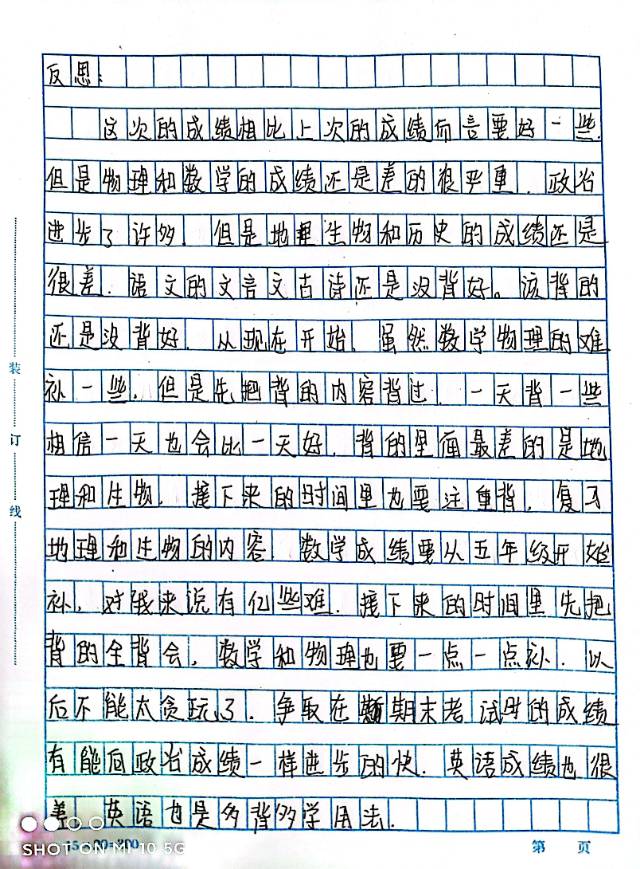 反思:
这次的成绩相比上次的成绩而言要好一些.
但是物理和数学的成绩还是差的很严重.政治
进步了许多.但是地理生物和历史的成绩还是
很差.语文的文言文古诗还是没背好。该背的
还是没背好.从现在开始.虽然数学物理的难
补一些.但是先把背的内容背过.一天背一些
相信一天也会比一天好.背的里面最差的是地
理和生物.接下来的时间里也要注重背.复习
地理和生物的内容.数学成绩要从五年级开始
补.对我来说有亿些难.接下来的时间里先把
背的全背会.数学和物理也要一点一点补.以
后不能太贪玩了.争取在期末考试时的成绩
有能向政治成绩一样进步的快.英语成绩也很
差.英语也是多背多学用法.
装
订
线
15×20=300
第 页
SHOT ON MI 10 5G